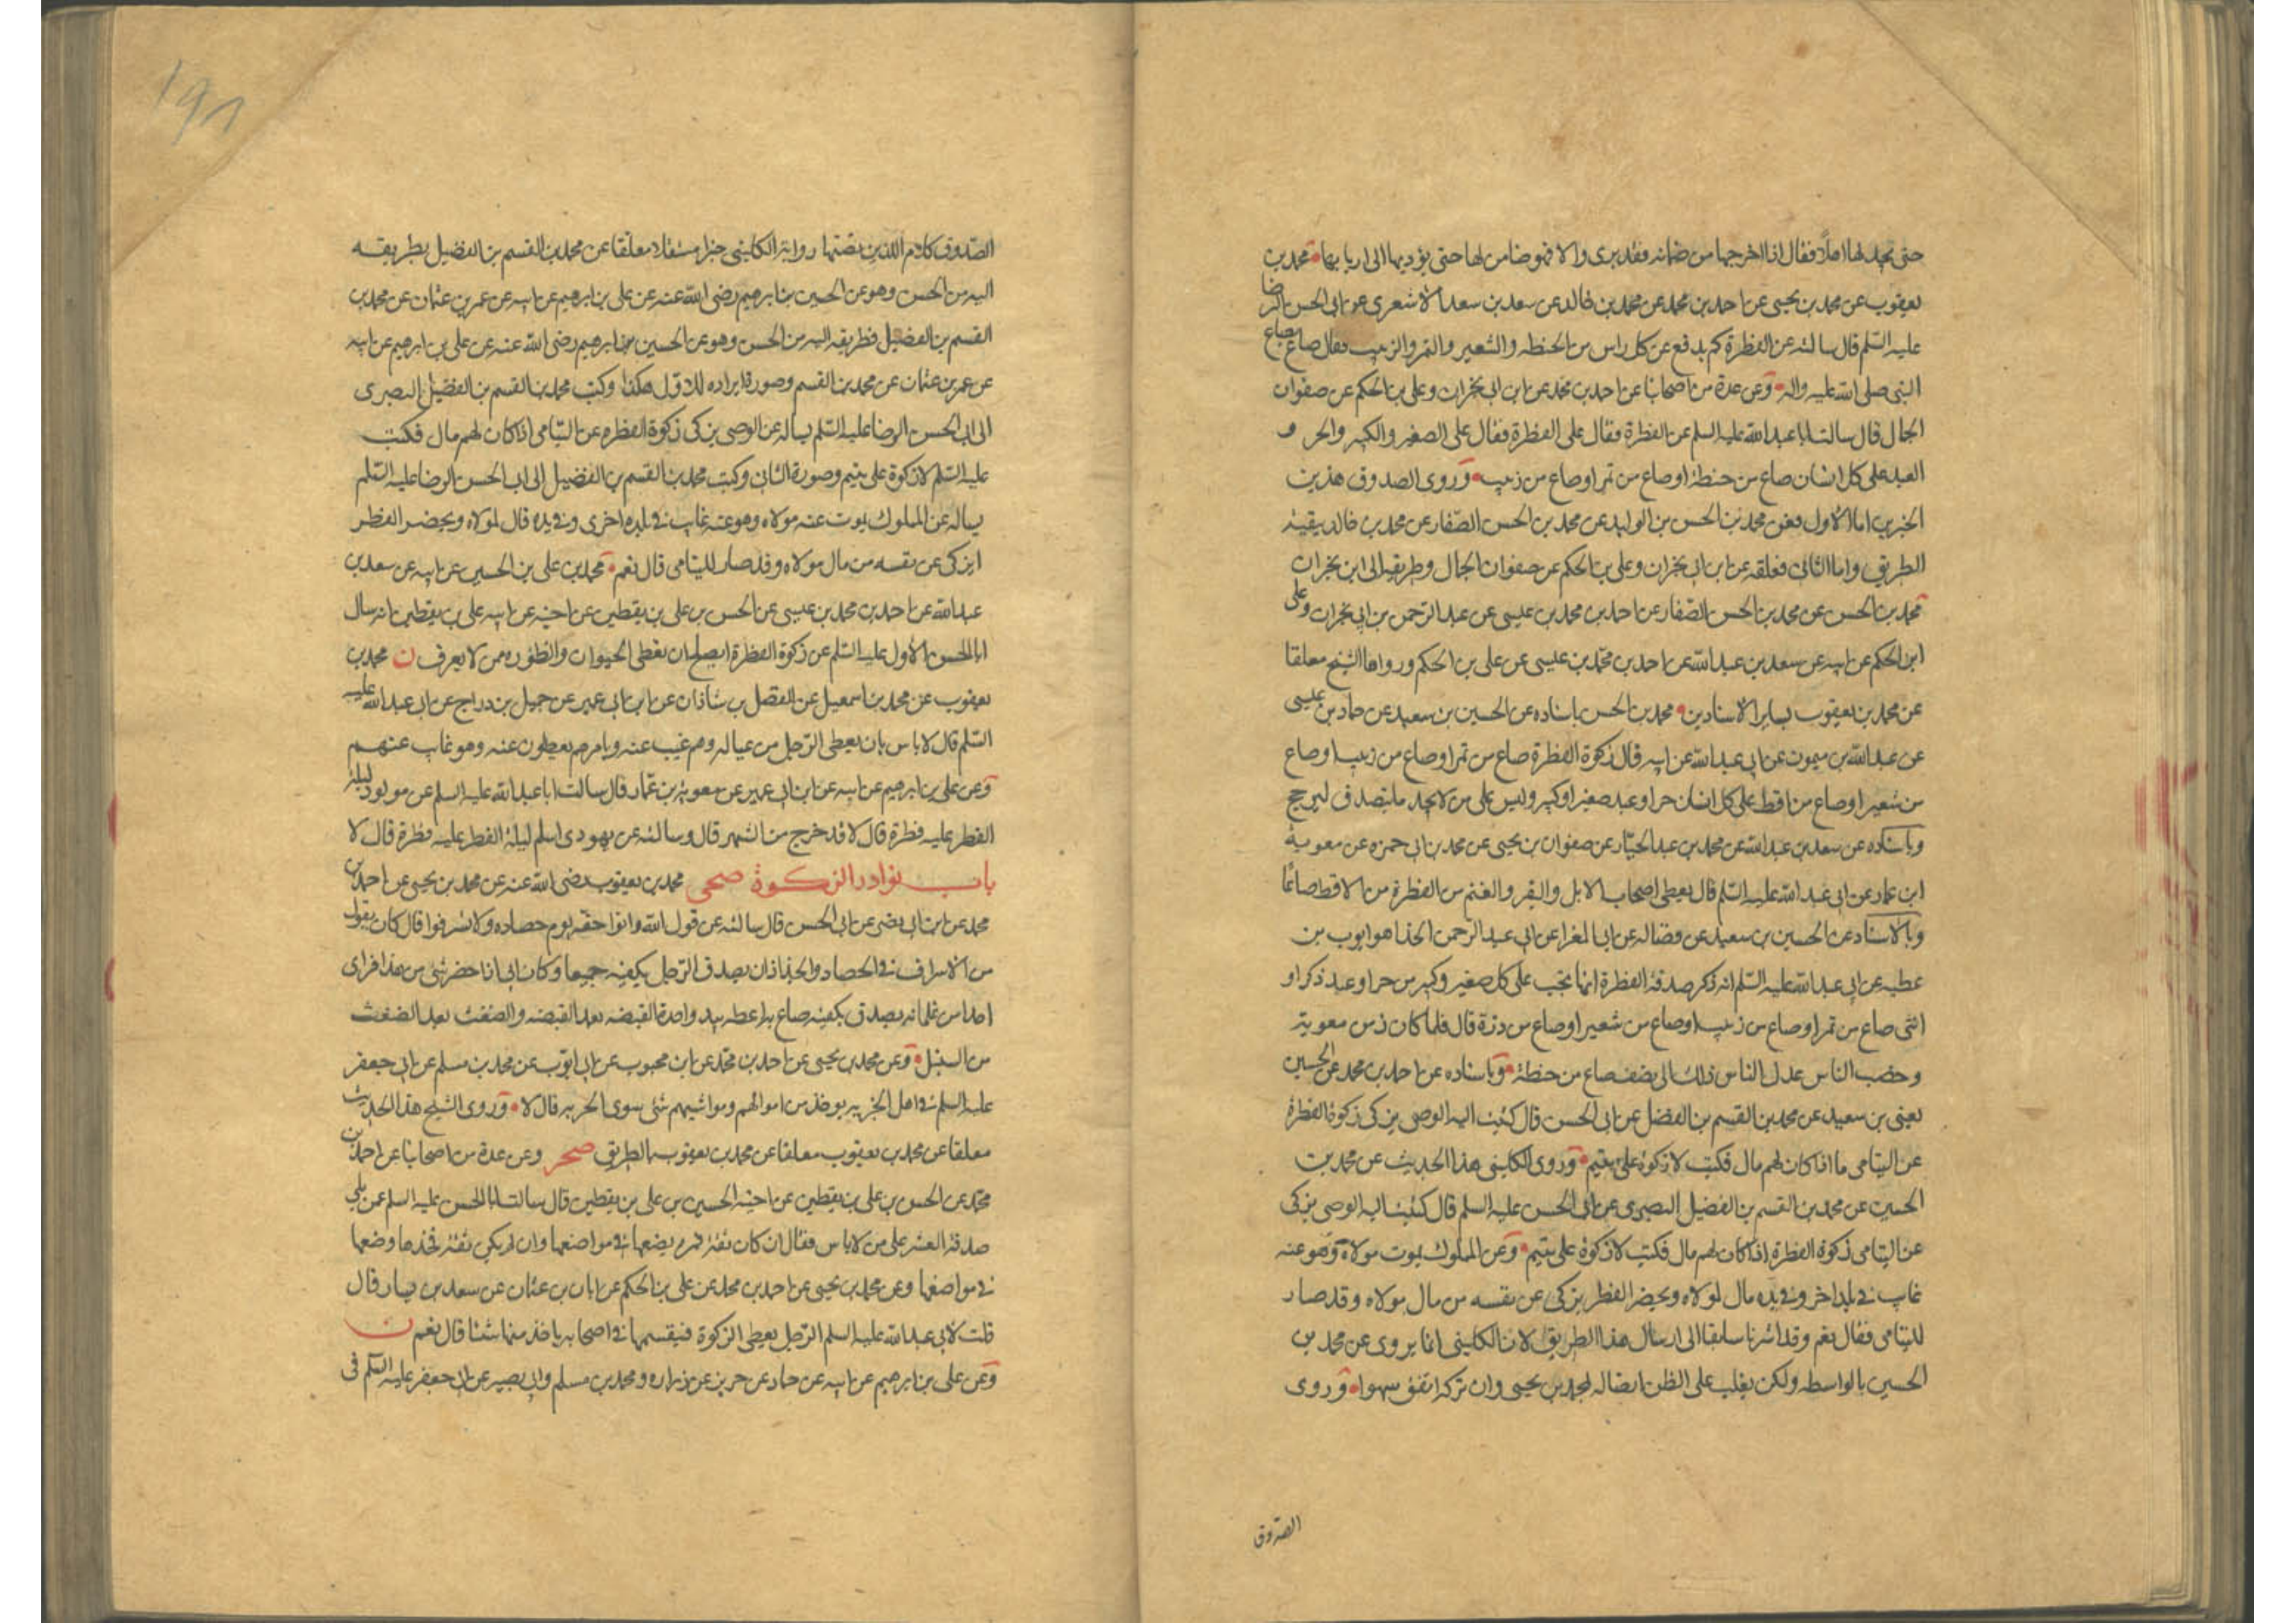 حتى يجد لها اهلا فقال اذا اخرجها من ضمانه فقد برى والا فهو ضامن لها حتى يؤديها الى اربابها محمد بن
يعقوب عن محمد بن يحيى عن احمد بن محمد عن محمد بن خالد عن سعد بن سعد الاشعرى عن ابى الحسن الرضا
عليه السلم قال سالته عن الفطرة كم يدفع عن كل راس من الحنطه والشعير والتمر والزبيب فقال صاع بصاع
النبى صلى الله عليه واله وعن عدة من اصحابنا عن احمد بن محمد عن ابن ابى نجران وعلى بن الحكم عن صفوان
الجمال قال سالت ابا عبد الله عليه السلم عن الفطرة فقال على الفطرة فقال على الصغير والكبير والحر و
العبد على كل انسان صاع من حنطة او صاع من تمر او صاع من زبيب وروى الصدوق هذين
الخبرين اما الاول فعن محمد بن الحسن بن الوليد عن محمد بن الحسن الصفار عن محمد بن خالد بقية
الطريق واما الثانى فعلقه عن ابن ابى نجران وعلى بن الحكم عن صفوان الجمال وطريقه الى ابن نجران
محمد بن الحسن عن محمد بن الحسن الصفار عن احمد بن محمد بن عيسى عن عبد الرحمن بن ابى نجران وعلى
ابن الحكم عن ابيه عن سعد بن عبد الله عن احمد بن محمد بن عيسى عن على بن الحكم ورواها الشيخ معلقا
عن محمد بن يعقوب بساير الاسنادين محمد بن الحسن باسناده عن الحسين بن سعيد عن حماد بن عيسى
عن عبد الله بن ميمون عن ابى عبد الله عن ابيه قال زكوة الفطرة صاع من تمر او صاع من زبيب او صاع
من شعير او صاع من اقط على كل انسان حر او عبد صغير او كبير وليس على من لا يجد ما يتصدق به حرج
وباسناده عن سعد بن عبد الله عن محمد بن عبد الجبار عن صفوان بن يحيى عن محمد بن ابى حمزه عن معوية
ابن عمار عن ابى عبد الله عليه السلم قال يعطى اصحاب الابل والبقر والغنم من الفطرة من الاقط صاعًا
وبالاسناد عن الحسين بن سعيد عن فضاله عن ابى المغرا عن ابى عبد الرحمن الحذا هو ايوب بن
عطيه عن ابى عبد الله عليه السلم انه ذكر صدقة الفطرة انما تجب على كل صغير وكبير من حر او عبد ذكر او
انثى صاع من تمر او صاع من زبيب او صاع من شعير او صاع من ذرة قال فلما كان زمن معوية
وخصب الناس عدل الناس ذلك الى نصف صاع من حنطة وباسناده عن احمد بن محمد عن الحسين
يعنى بن سعيد عن محمد بن القسم بن الفضل عن ابى الحسن قال كتبت اليه الوصى يزكى زكوة الفطرة
عن اليتامى ما اذا كان لهم مال فكتب لا زكوة على يتيم وروى الكلينى هذا الحديث عن محمد بن
الحسين عن محمد بن القسم بن الفضيل البصرى عن ابى الحسن عليه السلم قال كتبت اليه الوصى يزكى
عن اليتامى زكوة الفطرة اذا كان لهم مال فكتب لا زكوة على يتيم وعن المملوك يموت مولاه وهو عنه
غايب فى بلد اخر وفى يده مال لمولاه ويحضر الفطر يزكى عن نفسه من مال مولاه وقد صار
لليتامى فقال نعم وقد اشرنا سابقا الى ارسال هذا الطريق لان الكلينى انما يروى عن محمد بن
الحسين بالواسطه ولكن يغلب على الظن اتصاله بمحمد بن يحيى وان تركه اتفق سهوا وروى
الصدوق
الصدوق كلام اللذين تضمنها رواية الكلينى خبرا مستفادا معلقا عن محمد بن القسم بن الفضيل بطريقه
اليه من الحسن وهو عن الحسين بن ابرهيم رضى الله عنه عن على بن ابرهيم عن ابيه عن عمرو بن عثمان عن محمد بن
القسم بن الفضيل فطريقه اليه من الحسن وهو عن الحسين بن ابرهيم رضى الله عنه عن على بن ابرهيم عن ابيه
عن عمر بن عثمان عن محمد بن القسم وصورة ايراده للاول هكذا وكتب محمد بن القسم بن الفضيل البصرى
الى ابى الحسن الرضا عليه السلم يساله عن الوصى يزكى زكوة الفطره عن اليتامى اذا كان لهم مال فكتب
عليه السلم لا زكوة على يتيم وصورة الثانى وكتب محمد بن القسم بن الفضيل الى ابى الحسن الرضا عليه السلم
يساله عن المملوك يموت عنه مولاه وهو عنه غايب فى بلده اخرى وفى يده مال لمولاه ويحضر الفطر
ايزكى عن نفسه من مال مولاه وقد صار لليتامى قال نعم محمد بن على بن الحسين عن ابيه عن سعد بن
عبد الله عن احمد بن محمد بن عيسى عن الحسن بن على بن يقطين عن اخيه عن ابيه على بن يقطين انه سال
ابا الحسن الاول عليه السلم عن زكوة الفطرة ايصلح ان تعطى الجيران والظئوره ممن لا يعرف ن محمد بن
يعقوب عن محمد بن اسمعيل عن الفضل بن شاذان عن ابن ابى عمير عن جميل بن دراج عن ابى عبد الله عليه
السلم قال لا باس بان يعطى الرجل من عياله وهم غيب عنه ويامرهم يعطون عنه وهو غايب عنهم
وعن على بن ابرهيم عن ابيه عن ابن ابى عمير عن معوية بن عمار قال سالت ابا عبد الله عليه السلم عن مولود ليلة
الفطر عليه فطرة قال لا قد خرج من الشهر قال وسالته عن يهودى اسلم ليلة الفطر عليه فطرة قال لا
باب نوادر الزكوة صحى محمد بن يعقوب رضى الله عنه عن محمد بن يحيى عن احمد بن
محمد عن ابن ابى نصر عن ابى الحسن قال سالته عن قول الله واتوا حقه يوم حصاده ولا تسرفوا قال كان يقول
من الاسراف فى الحصاد والجذاذ ان يصدق الرجل بكفيه جميعا وكان ابى اذا حضر شئ من هذا فراى
احدا من غلمانه يصدق بكفيه صاح به اعط بيد واحدة القبضه بعد القبضه والضغث بعد الضغث
من السنبل وعن محمد بن يحيى عن احمد بن محمد عن ابن محبوب عن ابى ايوب عن محمد بن مسلم عن ابى جعفر
عليه السلم فى اهل الجزيه يوخذ من اموالهم ومواشيهم شئ سوى الجزيه قال لا وروى الشيخ هذا الحديث
معلقا عن محمد بن يعقوب معلقا عن محمد بن يعقوب بالطريق صحر وعن عدة من اصحابنا عن احمد بن
محمد عن الحسن بن على بن يقطين عن اخيه الحسين بن على بن يقطين قال سالت ابا الحسن عليه السلم عمن يلى
صدقة العشر على من لا باس فقال ان كان ثقة فمره يضعها فى مواضعها وان لم يكن ثقة فخذها وضعها
فى مواضعها وعن محمد بن يحيى عن احمد بن محمد عن على بن الحكم عن ابان بن عثمان عن سعيد بن يسار قال
قلت لابى عبد الله عليه السلم الرجل يعطى الزكوة فيقسمها فى اصحابه ياخذ منها شئا قال نعم ن
وعن على بن ابرهيم عن ابيه عن حماد عن حريز عن زراره ومحمد بن مسلم وابى بصير عن ابى جعفر عليه السلم فى